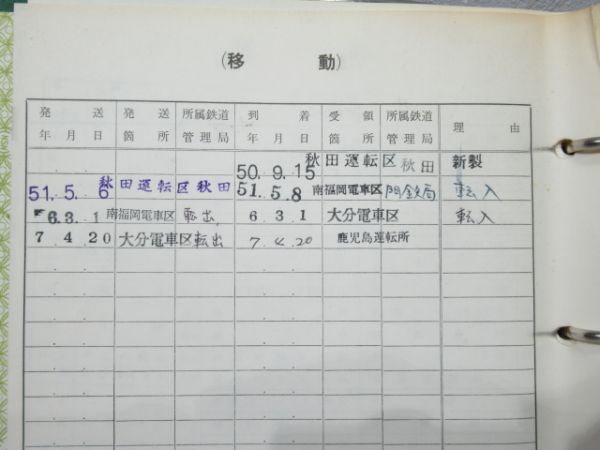 (移 動)
発送 発送 所属鉄道 到着 受領 所属鉄道 理由
年月日 箇所 管理局 年月日 箇所 管理局
50.9.15 秋田運転区 秋田 新製
51.5.6 秋田運転区 秋田 51.5.8 南福岡電車区 門鉄局 転入
6.3.1 南福岡電車区 転出 6 3 1 大分電車区 転入
7 4 20 大分電車区 転出 7.4.20 鹿児島運転所